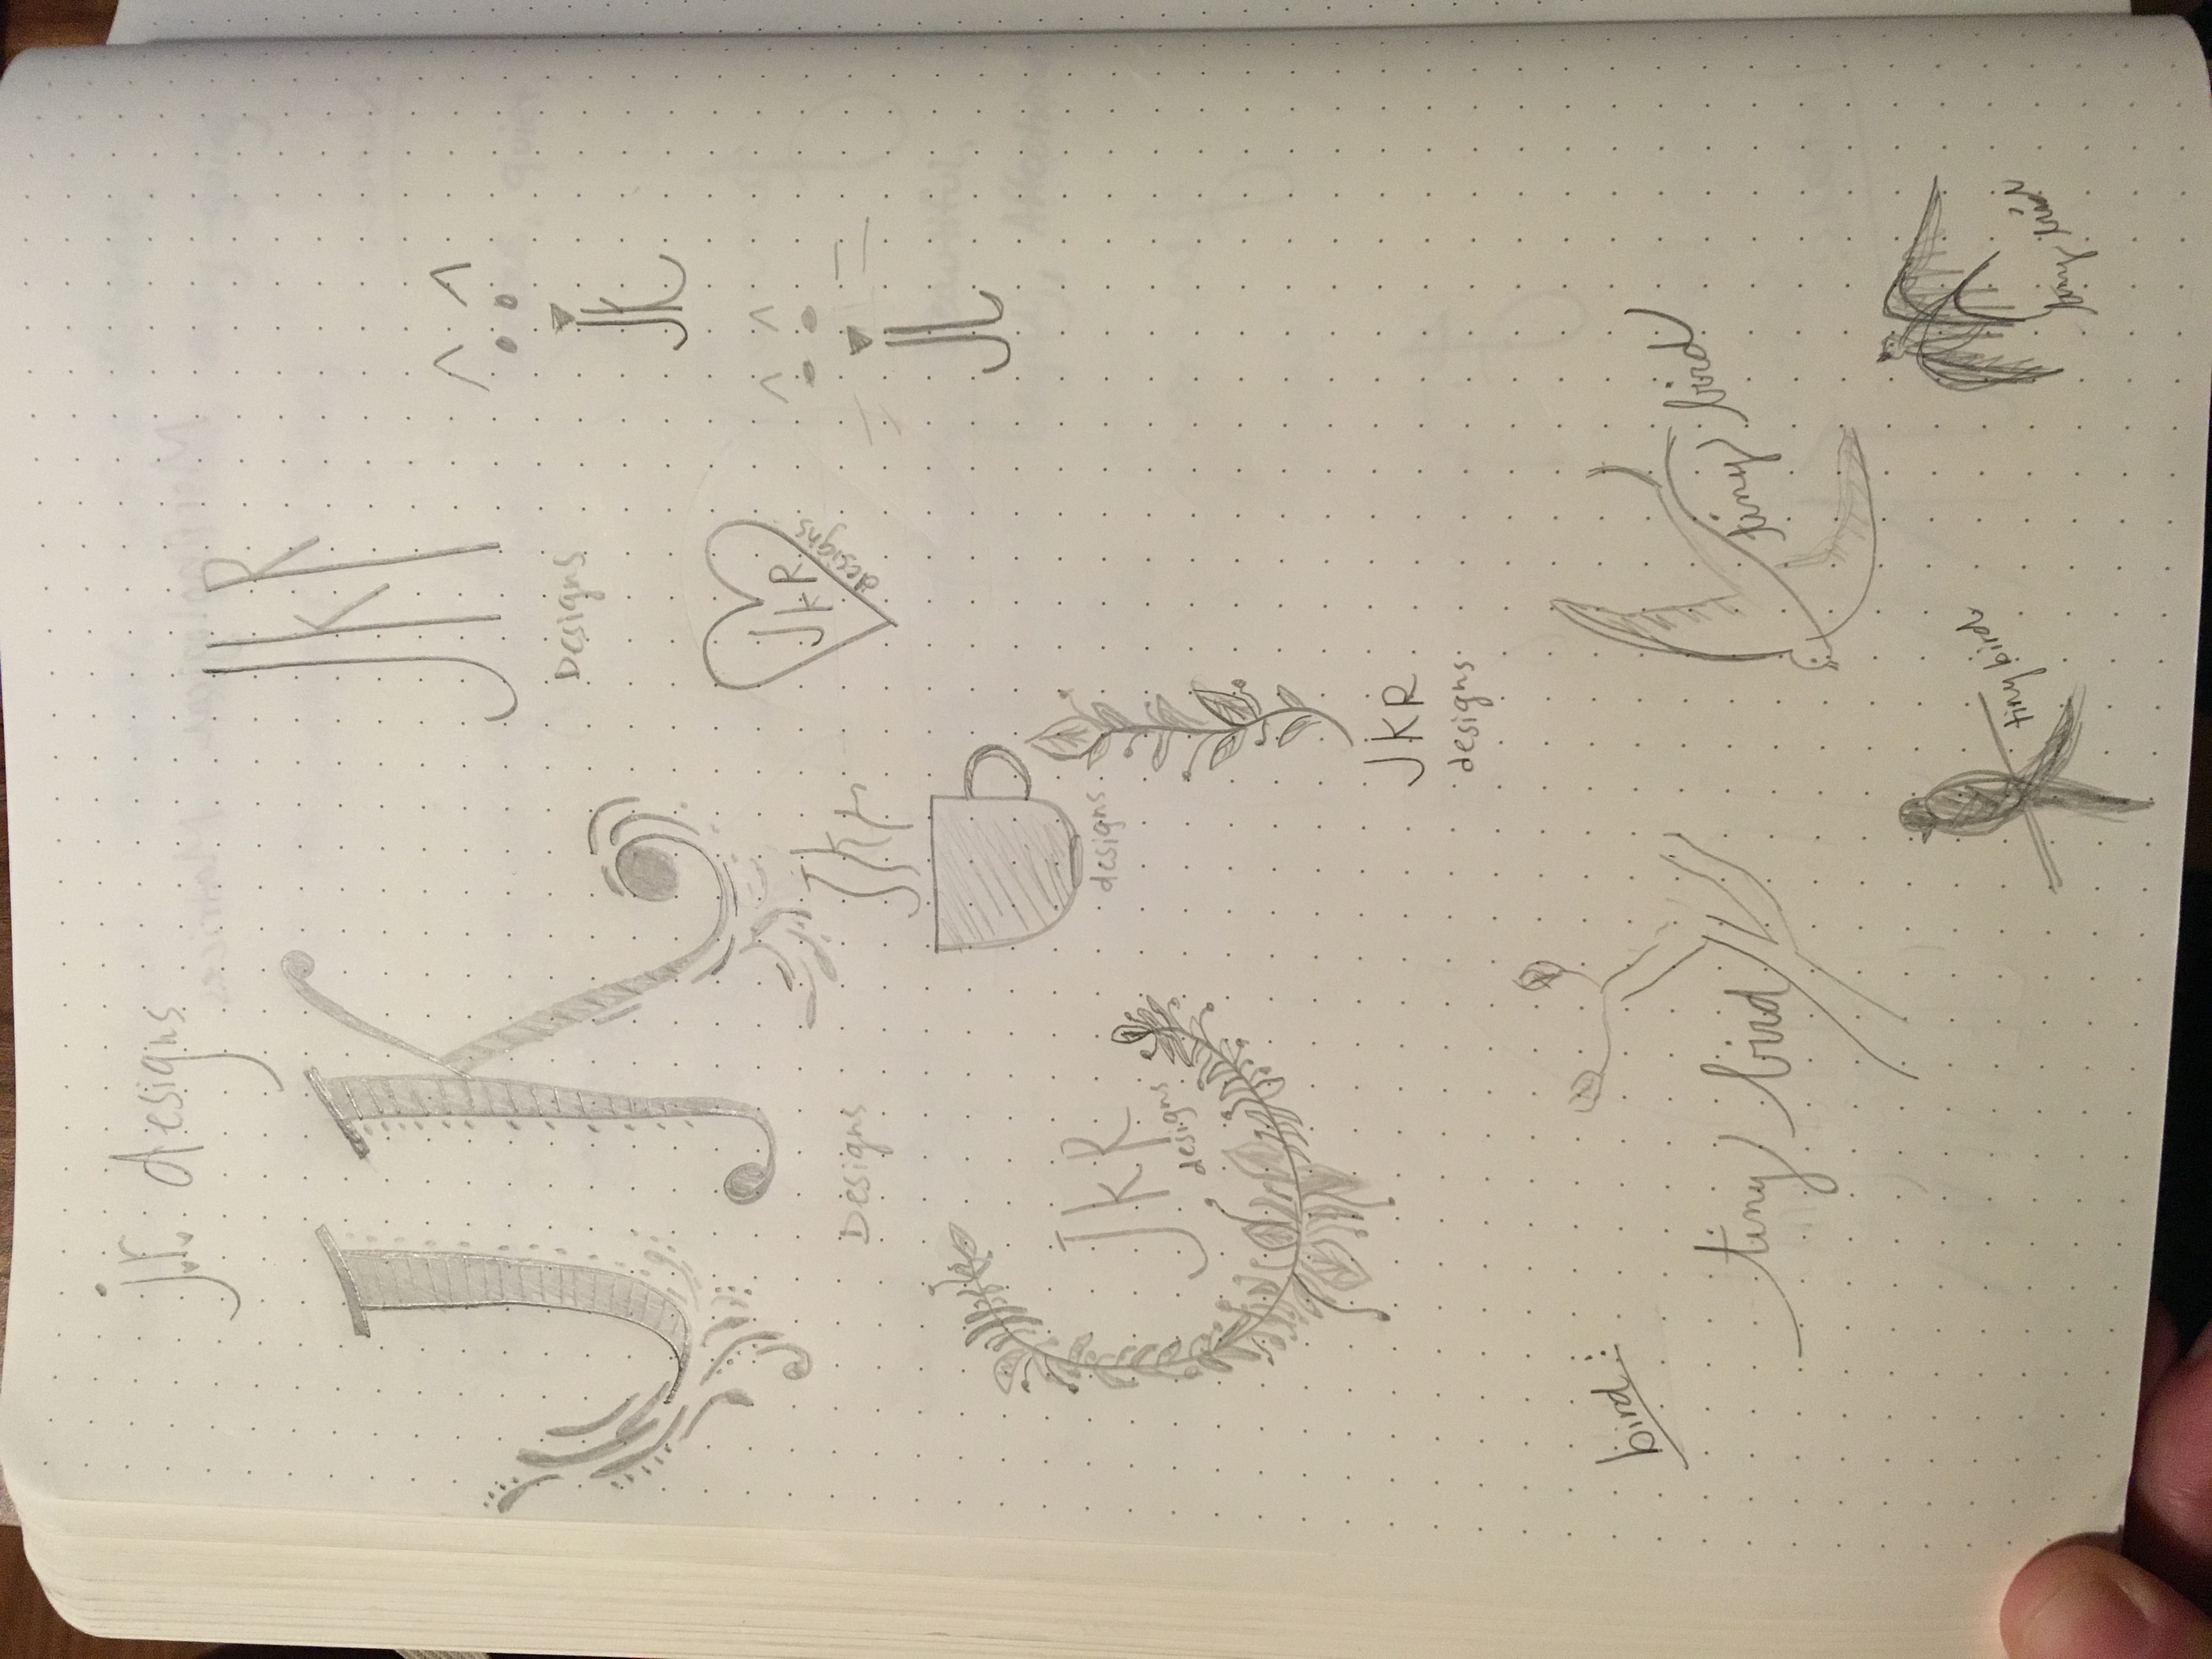 j.r. designs
JKR
Designs
JK
Designs
JK
JKR
designs
Jkr
designs
JL
JKR
designs
JKR
designs
bird:
tiny bird
tiny bird
tiny bird
tiny bird